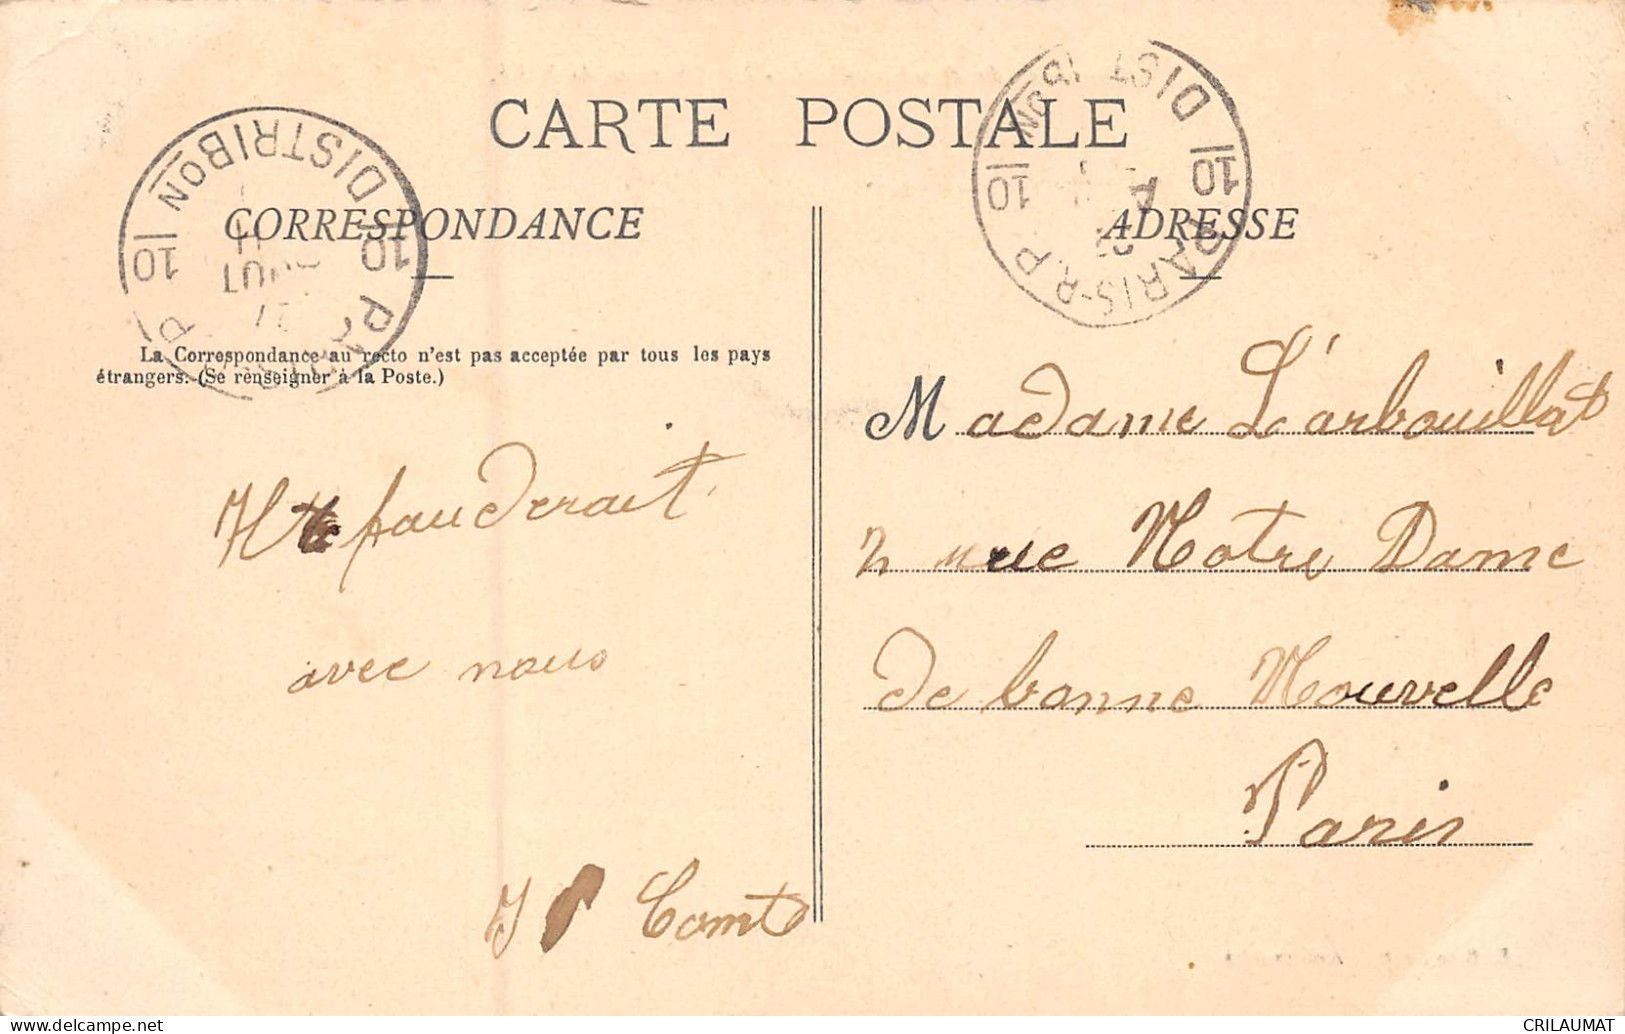 CARTE POSTALE
CORRESPONDANCE
ADRESSE
DISTRIBON
10 10
AOUT
DIST
10 10
PARIS-R.P.
La Correspondance au recto n'est pas acceptée par tous les pays
étrangers. (Se renseigner à la Poste.)
Madame Larbouillat
2 rue Notre Dame
de bonne Nouvelle
Paris
fauderait
avec nous
Comt
CRILAUMAT